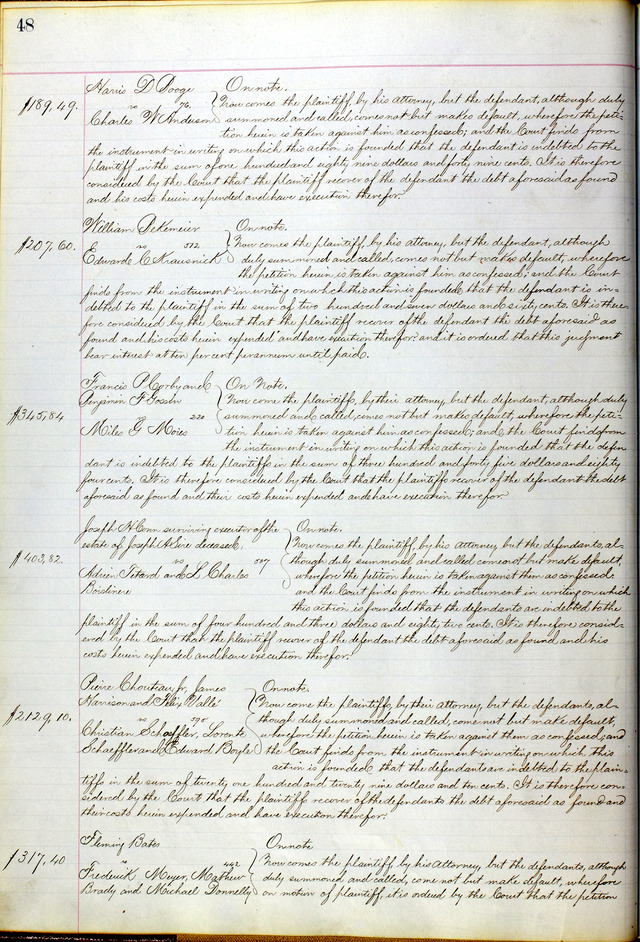 48
Harris D Booge On note.
$189,49. vs 76. Now comes the plaintiff by his attorney, but the defendant, although duly
Charles W Anderson summoned and called, comes not but makes default, wherefore the peti-
tion herein is taken against him as confessed; and the Court finds from
the instrument in writing on which this action is founded that the defendant is indebted to the
plaintiff in the sum of one hundred and eighty nine dollars and forty nine cents. It is therefore
considered by the Court that the plaintiff recover of the defendant the debt aforesaid as found
and his costs herein expended and have execution therefor.
William Dekemeier On note.
$207,60. vs 512 Now comes the plaintiff, by his attorney, but the defendant, although
Edward C Krausnick duly summoned and called, comes not but makes default, wherefore
the petition herein is taken against him as confessed, and the Court
finds from the instrument in writing on which this action is founded, that the defendant is in-
debted to the plaintiff in the sum of two hundred and seven dollars and sixty cents. It is there-
fore considered by the Court that the plaintiff recover of the defendant the debt aforesaid as
found and his costs herein expended and have execution therefor: and it is ordered that this judgment
bear interest at ten per cent per annum until paid.
Francis P. Corby and On Note.
Benjamin F Gossin Now come the plaintiffs, by their attorney, but the defendant, although duly
$345,84 vs 220 summoned and called, comes not but makes default, wherefore the peti-
Miles G Moies tion herein is taken against him as confessed; and the Court finds from
the instrument in writing on which this action is founded that the defen
dant is indebted to the plaintiffs in the sum of three hundred and forty five dollars and eighty
four cents. It is therefore considered by the Court that the plaintiffs recover of the defendant the debt
aforesaid as found and their costs herein expended and have execution therefor
Joseph H Conn surviving executor of the On note.
estate of Joseph A Sire deceased. Now comes the plaintiff, by his attorney, but the defendants, al-
$403,82. vs 507 though duly summoned and called come not but make default,
Adrien Tetard and L Charles wherefore the petition herein is taken against them as confessed,
Boisliniere and the Court finds from the instrument in writing on which
this action is founded that the defendants are indebted to the
plaintiff in the sum of four hundred and three dollars and eighty two cents. It is therefore consid-
ered by the Court that the plaintiff recover of the defendant the debt aforesaid as found and his
costs herein expended and have execution therefor.
Pierre Chouteau Jr, James On note.
Harrison and Felix Vallé Now come the plaintiffs, by their Attorney, but the defendants, al-
$2129,10. vs though duly summoned and called, come not but make default,
Christian Schaeffler, Lorentz wherefore the petition herein is taken against them as confessed; and
Schaeffler and Edward Boyle the Court finds from the instrument in writing on which this
action is founded, that the defendants are indebted to the plain-
tiffs in the sum of twenty one hundred and twenty nine dollars and ten cents. It is therefore con-
sidered by the Court that the plaintiffs recover of the defendants the debt aforesaid as found and
their costs herein expended and have execution therefor.
Fleming Bates On note
$317,40 vs 442 Now comes the plaintiff by his Attorney, but the defendants, although
Frederick Meyer, Mathew duly summoned and called, come not but make default, wherefore
Brady and Michael Donnelly on motion of plaintiff, it is ordered by the Court that the petition